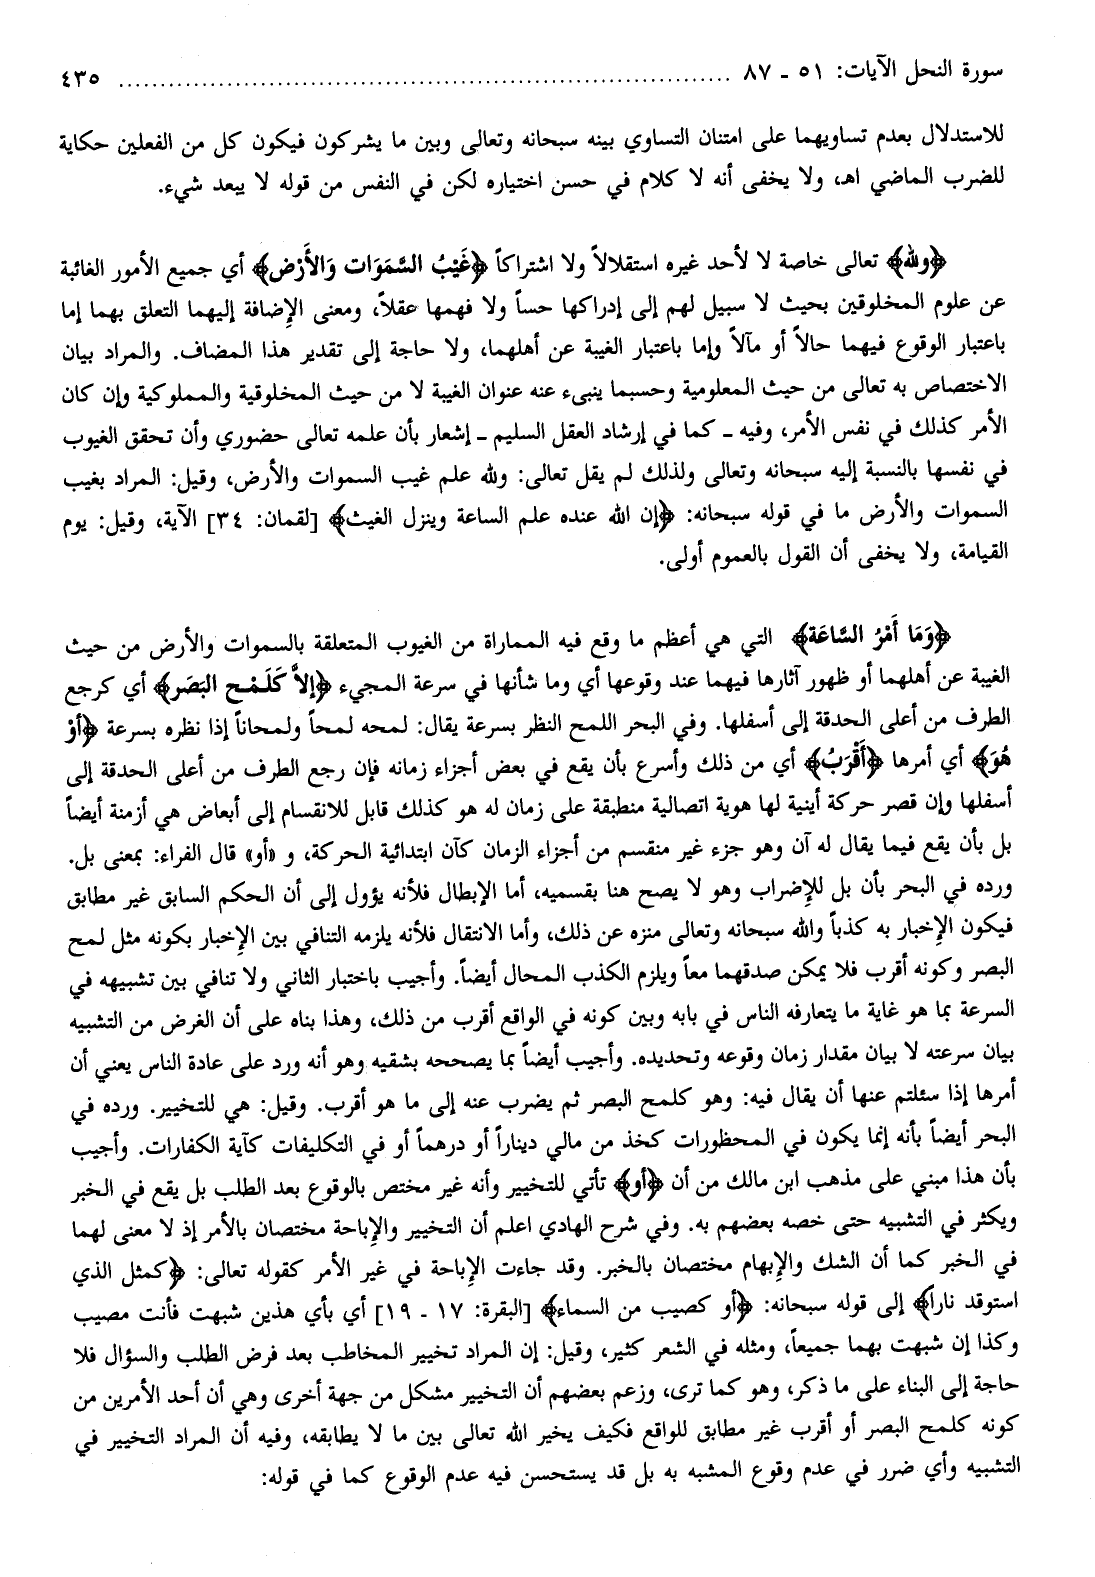 سورة النحل الآيات: ٥١ ـ ٨٧ ........................................................................ ٤٣٥
للاستدلال بعدم تساويهما على امتنان التساوي بينه سبحانه وتعالى وبين ما يشركون فيكون كل من الفعلين حكاية
للضرب الماضي اهـ، ولا يخفى أنه لا كلام في حسن اختياره لكن في النفس من قوله لا يبعد شيء.
﴿ولله﴾ تعالى خاصة لا لأحد غيره استقلالاً ولا اشتراكاً ﴿غَيْبُ السَّمَوَات وَالأَرْض﴾ أي جميع الأمور الغائبة
عن علوم المخلوقين بحيث لا سبيل لهم إلى إدراكها حساً ولا فهمها عقلاً، ومعنى الإِضافة إليهما التعلق بهما إما
باعتبار الوقوع فيهما حالاً أو مآلاً وإما باعتبار الغيبة عن أهلهما، ولا حاجة إلى تقدير هذا المضاف. والمراد بيان
الاختصاص به تعالى من حيث المعلومية وحسبما ينبىء عنه عنوان الغيبة لا من حيث المخلوقية والمملوكية وإن كان
الأمر كذلك في نفس الأمر، وفيه ـ كما في إرشاد العقل السليم ـ إشعار بأن علمه تعالى حضوري وأن تحقق الغيوب
في نفسها بالنسبة إليه سبحانه وتعالى ولذلك لم يقل تعالى: ولله علم غيب السموات والأرض، وقيل: المراد بغيب
السموات والأرض ما في قوله سبحانه: ﴿إن الله عنده علم الساعة وينزل الغيث﴾ [لقمان: ٣٤] الآية، وقيل: يوم
القيامة، ولا يخفى أن القول بالعموم أولى.
﴿وَمَا أَمْرُ السَّاعَة﴾ التي هي أعظم ما وقع فيه المماراة من الغيوب المتعلقة بالسموات والأرض من حيث
الغيبة عن أهلهما أو ظهور آثارها فيهما عند وقوعها أي وما شأنها في سرعة المجيء ﴿إلاَّ كَلَمْح البَصَر﴾ أي كرجع
الطرف من أعلى الحدقة إلى أسفلها. وفي البحر اللمح النظر بسرعة يقال: لمحه لمحاً ولمحاناً إذا نظره بسرعة ﴿أَوْ
هُوَ﴾ أي أمرها ﴿أَقْرَبُ﴾ أي من ذلك وأسرع بأن يقع في بعض أجزاء زمانه فإن رجع الطرف من أعلى الحدقة إلى
أسفلها وإن قصر حركة أينية لها هوية اتصالية منطبقة على زمان له هو كذلك قابل للانقسام إلى أبعاض هي أزمنة أيضاً
بل بأن يقع فيما يقال له آن وهو جزء غير منقسم من أجزاء الزمان كآن ابتدائية الحركة، و «أو» قال الفراء: بمعنى بل.
ورده في البحر بأن بل للإِضراب وهو لا يصح هنا بقسميه، أما الإبطال فلأنه يؤول إلى أن الحكم السابق غير مطابق
فيكون الإِخبار به كذباً والله سبحانه وتعالى منزه عن ذلك، وأما الانتقال فلأنه يلزمه التنافي بين الإِخبار بكونه مثل لمح
البصر وكونه أقرب فلا يمكن صدقهما معاً ويلزم الكذب المحال أيضاً. وأجيب باختبار الثاني ولا تنافي بين تشبيهه في
السرعة بما هو غاية ما يتعارفه الناس في بابه وبين كونه في الواقع أقرب من ذلك، وهذا بناه على أن الغرض من التشبيه
بيان سرعته لا بيان مقدار زمان وقوعه وتحديده. وأجيب أيضاً بما يصححه بشقيه وهو أنه ورد على عادة الناس يعني أن
أمرها إذا سئلتم عنها أن يقال فيه: وهو كلمح البصر ثم يضرب عنه إلى ما هو أقرب. وقيل: هي للتخيير. ورده في
البحر أيضاً بأنه إنما يكون في المحظورات كخذ من مالي ديناراً أو درهماً أو في التكليفات كآية الكفارات. وأجيب
بأن هذا مبني على مذهب ابن مالك من أن ﴿أو﴾ تأتي للتخيير وأنه غير مختص بالوقوع بعد الطلب بل يقع في الخبر
ويكثر في التشبيه حتى خصه بعضهم به. وفي شرح الهادي اعلم أن التخيير والإِباحة مختصان بالأمر إذ لا معنى لهما
في الخبر كما أن الشك والإِبهام مختصان بالخبر. وقد جاءت الإِباحة في غير الأمر كقوله تعالى: ﴿كمثل الذي
استوقد ناراً﴾ إلى قوله سبحانه: ﴿أو كصيب من السماء﴾ [البقرة: ١٧ ـ ١٩] أي بأي هذين شبهت فأنت مصيب
وكذا إن شبهت بهما جميعاً، ومثله في الشعر كثير، وقيل: إن المراد تخيير المخاطب بعد فرض الطلب والسؤال فلا
حاجة إلى البناء على ما ذكر، وهو كما ترى، وزعم بعضهم أن التخيير مشكل من جهة أخرى وهي أن أحد الأمرين من
كونه كلمح البصر أو أقرب غير مطابق للواقع فكيف يخير الله تعالى بين ما لا يطابقه، وفيه أن المراد التخيير في
التشبيه وأي ضرر في عدم وقوع المشبه به بل قد يستحسن فيه عدم الوقوع كما في قوله: